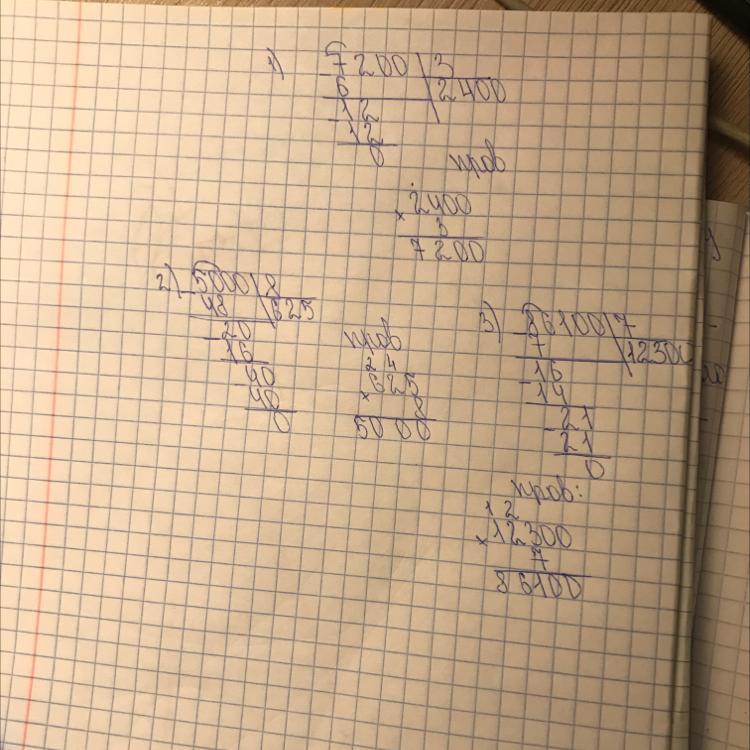 1) 7200 | 3
- 6 | 2400
- 12
12
0
пров
× 2400
3
7200
2) 5000 | 8
- 48 | 625
- 20
16
- 40
40
0
пров
2 4
× 625
8
5000
3) 86100 | 7
- 7 | 12300
- 16
14
- 21
21
0
пров:
1 2
× 12300
7
86100